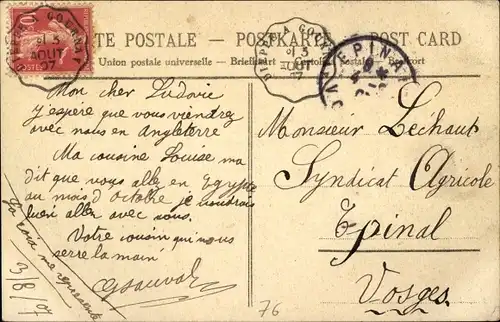 10
POSTES
DIEPPE A GOURNAY
3
AOUT
07
CARTE POSTALE - POSTKARTE - POST CARD
Union postale universelle - Briefkaart - Cartolina Postale - Brevkort
DIEPPE A GOURNAY
3
AOUT
07
EPINAL
Mon cher Ludovic
j'espère que vous viendrez
avec nous en Angleterre
Ma cousine Louise ma
dit que vous alle en Egypte
au mois d Octobre je voudrais
bien aller avec vous.
Votre cousin qui vous
serre la main
3/8/07
Monsieur Léchaut
Syndicat Agricole
Epinal
Vosges
76